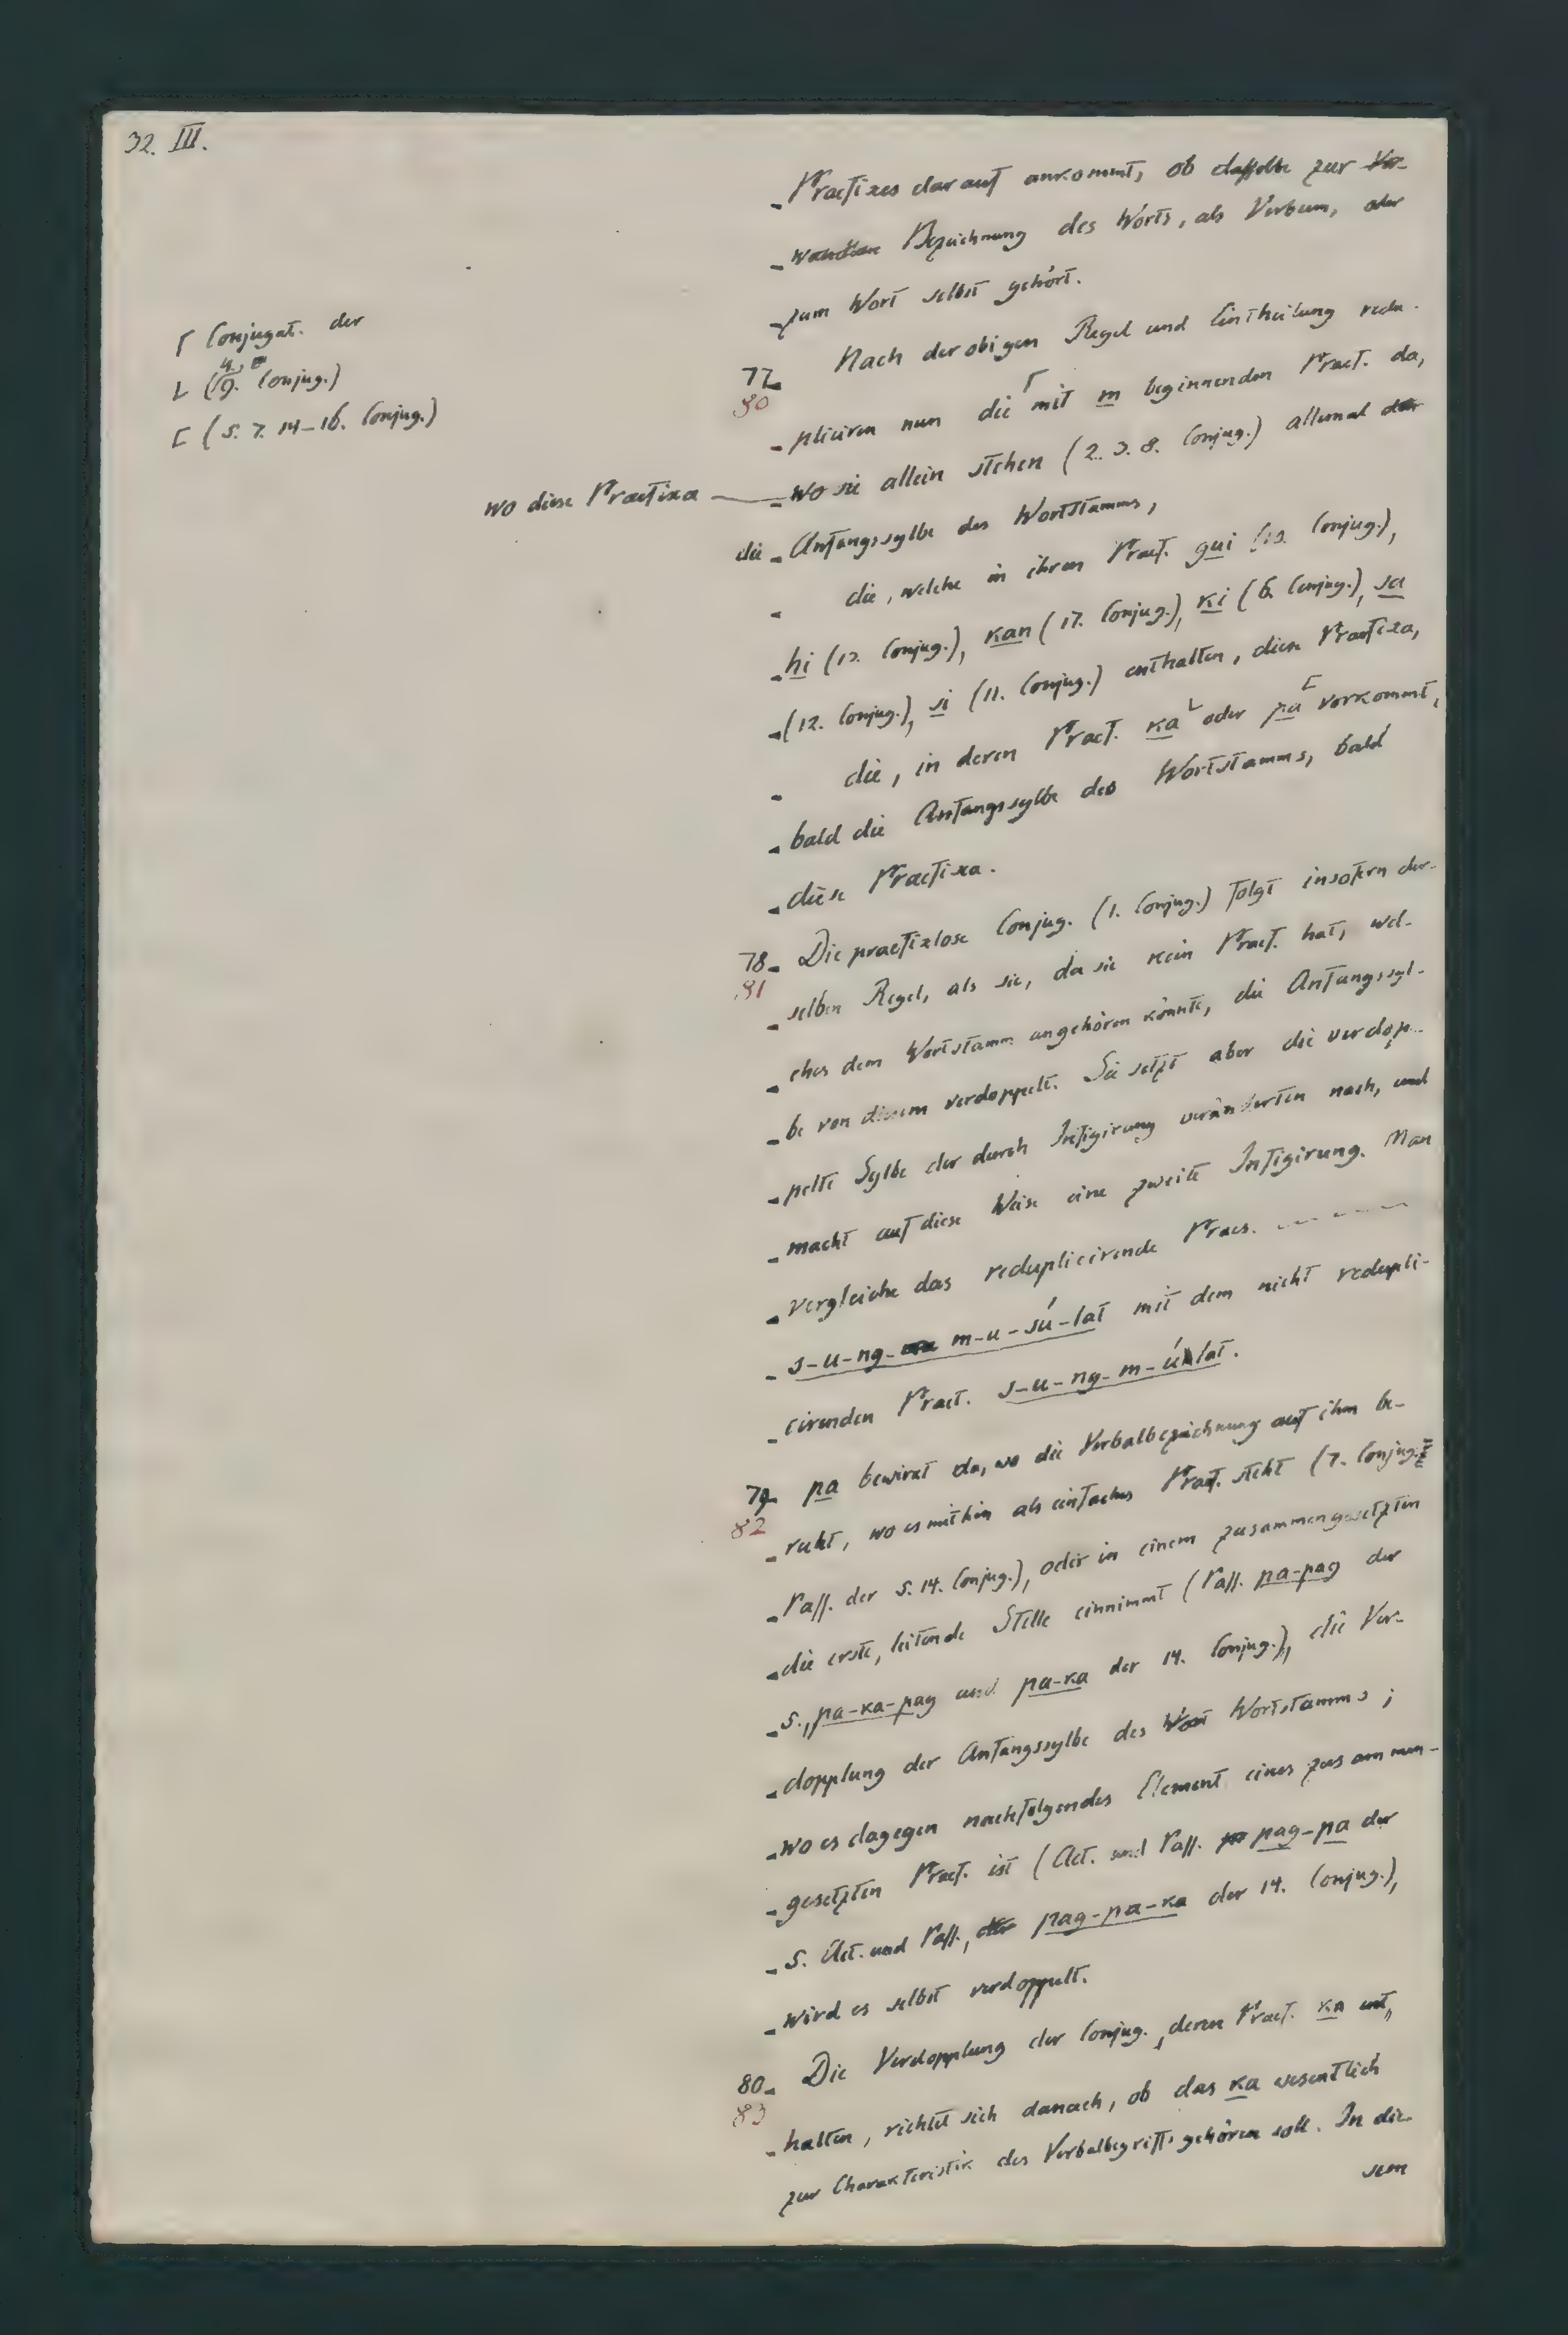 32. III.
Praefixes darauf ankommt, ob dasselbe zur Ver-
wandlen Bezeichnung des Worts, als Verbum, oder
zum Wort selbst gehört.
77 Nach der obigen Regel und Eintheilung redu-
80
pliciren nun die ⌈ mit m beginnenden Praef. da,
⌈ Conjugat. der
wo sie allein stehen (2. 3. 8. Conjug.) allemal der
L (4. 9. Conjug.)
[ (5. 7. 14-16. Conjug.)
wo diese Praefixa
die Anfangssylbe des Wortstamms,
die, welche in ihren Praef. gui (10. Conjug.),
hi (13. Conjug.), kan (17. Conjug.), ki (6. Conjug.), sa
(12. Conjug.), si (11. Conjug.) enthalten, diese Praefixa,
die, in deren Praef. ka L oder pa [ vorkommt,
bald die Anfangssylbe des Wortstamms, bald
diese Praefixa.
78 Die praefixlose Conjug. (1. Conjug.) folgt insofern der-
81
selben Regel, als sie, da sie kein Praef. hat, wel-
ches dem Wortstamm angehören könnte, die Anfangssyl-
be von diesem verdoppelt. Sie setzt aber die verdop-
pelte Sylbe der durch Infigirung veränderten nach, und
macht auf diese Weise eine zweite Infigirung. Man
vergleiche das reduplicirende Praes.
s-u-ng-m-u-sú-lat mit dem nicht redupli-
cirenden Praet. s-u-ng-m-ú-lat.
79 pa bewirkt da, wo die Verbalbezeichnung auf ihm be-
82
ruht, wo es mithin als einfaches Praef. steht (7. Conjug.
Pass. der 5. 14. Conjug.), oder in einem zusammengesetzten
die erste, leitende Stelle einnimmt (Pass. pa-pag der
5., pa-ka-pag und pa-ka der 14. Conjug.), die Ver-
dopplung der Anfangssylbe des Wort Wortstamms;
wo es dagegen nachfolgendes Element eines zusammen-
gesetzten Praef. ist (Act. und Pass. pag-pa der
5. Act. und Pass., der pag-pa-ka der 14. Conjug.),
wird es selbst verdoppelt.
80 Die Verdopplung der Conjug., deren Praef. ka ent-
83
halten, richtet sich danach, ob das ka wesentlich
zur Charakteristik des Verbalbegriffs gehören soll. In die-
sem